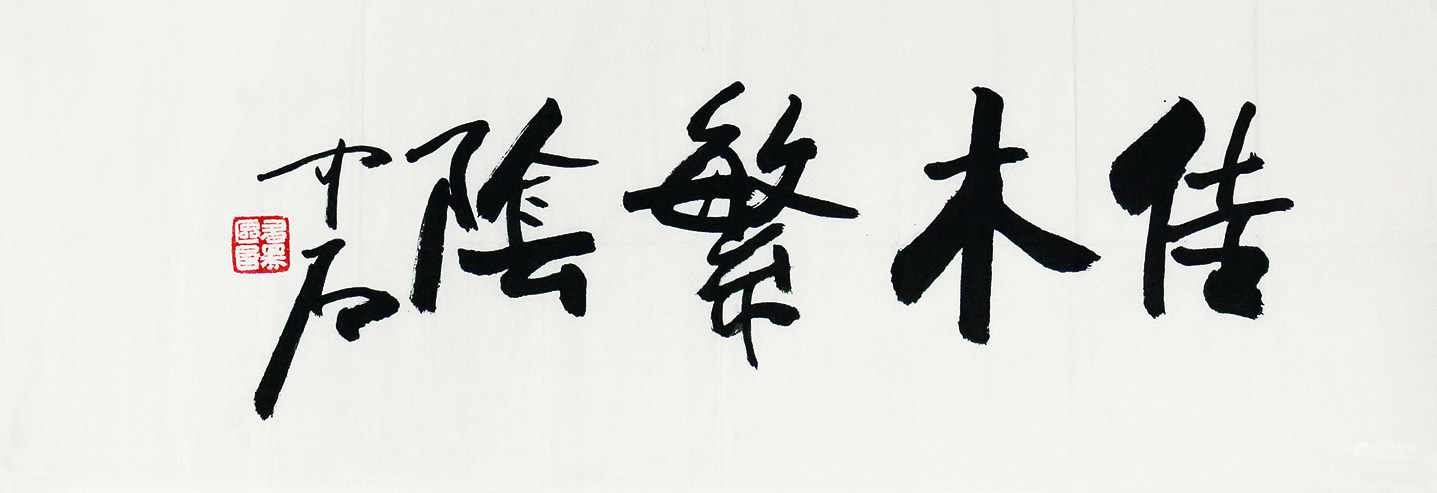 佳木繁陰
中石